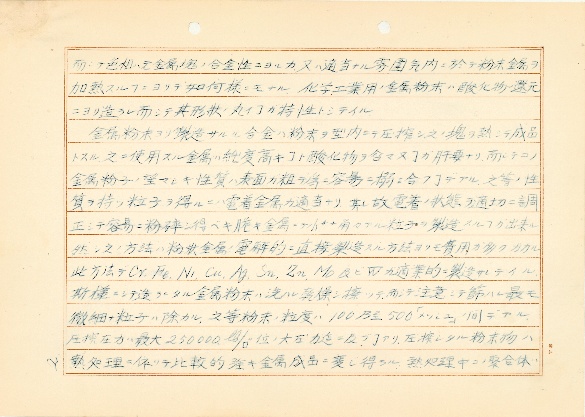 而シテ色相ハ主金属塩ノ合金性ニヨルカ又ハ適当ナル雰囲気内ニ於テ粉末金属ヲ
加熱スルコトヨリテ如何様ニモナル 化学工業用ノ金属粉末ハ酸化物ノ還元
ニヨリ造ラレ而シテ其形状ノ丸イコトガ特性トシテイル
金属粉末ヨリ製造サルル合金ハ粉末ヲ型内ニテ圧搾シ之ノ塊ヲ熱シテ成品
トスル 之ニ使用スル金属ハ純度高キコト酸化物ヲ含マヌコトガ肝要ナリ 而シテコノ
金属粉子ノ望マシキ性質ハ表面ガ粗ク容易ニ
質ヲ持ツ粒子ヲ得ルニハ電着金属ガ適当ナリ 電着ノ状態ヲ適切ニ調
正シテ容易ニ粉砕シ得ベキ脆キ金属 粒子ヲ製造スルコトガ出来ル
然シ之ノ方法ハ粉状金属ヲ電解的ニ直接製造スル方法ヨリモ費用ヲ多クカカル
此方法デ Cr, Fe, Ni, Cu, Ag, Sn, Zn 及ビ 商業的ニ製造サレテイル
斯様ニシテ造ラレタル金属粉末ハ洗ハレ乾燥 而シテ注意シテ篩ハレ最モ
微細ナ粒子ハ除カル 之等粉末ノ粒度ハ 100乃至500メッシュノ間デアル
圧搾圧力ハ最大 250,000 位ノ大圧力迄 圧搾シタル粉末物ハ
熱処理ニ依リテ比較的強キ金属成品ニ変ジ得ラル 熱処理中ニハ聚合体ノ